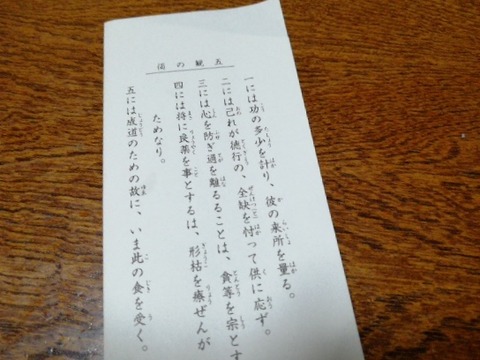 五観の偈
一には功の多少を計り、彼の来所を量る。
二には己れが徳行の、全缺を忖って供に応ず。
三には心を防ぎ過を離るることは、貪等を宗とす
四には将に良薬を事とするは、形枯を療ぜんが
ためなり。
五には成道のための故に、いま此の食を受く。